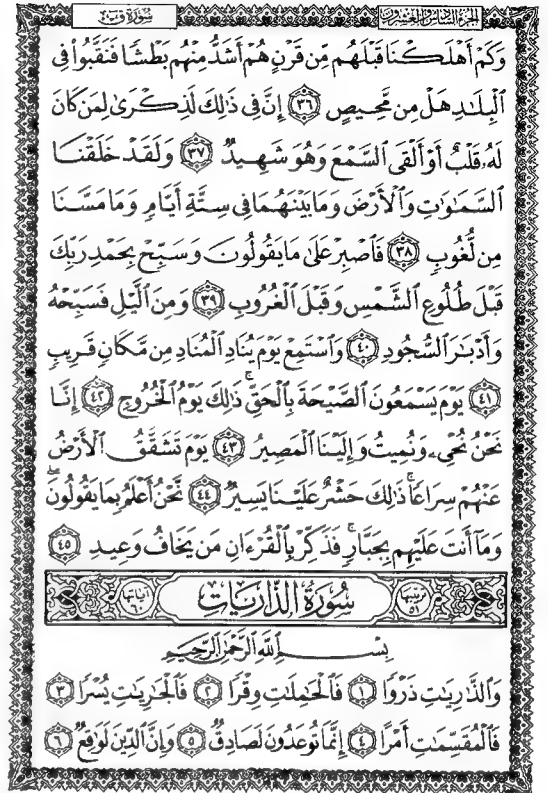 سورة ق ٥٠ الجزء السادس والعشرون
وَكَمْ أَهْلَكْنَا قَبْلَهُم مِّن قَرْنٍ هُمْ أَشَدُّ مِنْهُم بَطْشًا فَنَقَّبُوا۟ فِى
ٱلْبِلَٰدِ هَلْ مِن مَّحِيصٍ ٣٦ إِنَّ فِى ذَٰلِكَ لَذِكْرَىٰ لِمَن كَانَ
لَهُۥ قَلْبٌ أَوْ أَلْقَى ٱلسَّمْعَ وَهُوَ شَهِيدٌ ٣٧ وَلَقَدْ خَلَقْنَا
ٱلسَّمَٰوَٰتِ وَٱلْأَرْضَ وَمَا بَيْنَهُمَا فِى سِتَّةِ أَيَّامٍ وَمَا مَسَّنَا
مِن لُّغُوبٍ ٣٨ فَٱصْبِرْ عَلَىٰ مَا يَقُولُونَ وَسَبِّحْ بِحَمْدِ رَبِّكَ
قَبْلَ طُلُوعِ ٱلشَّمْسِ وَقَبْلَ ٱلْغُرُوبِ ٣٩ وَمِنَ ٱلَّيْلِ فَسَبِّحْهُ
وَأَدْبَٰرَ ٱلسُّجُودِ ٤٠ وَٱسْتَمِعْ يَوْمَ يُنَادِ ٱلْمُنَادِ مِن مَّكَانٍ قَرِيبٍ
٤١ يَوْمَ يَسْمَعُونَ ٱلصَّيْحَةَ بِٱلْحَقِّ ۚ ذَٰلِكَ يَوْمُ ٱلْخُرُوجِ ٤٢ إِنَّا
نَحْنُ نُحْىِۦ وَنُمِيتُ وَإِلَيْنَا ٱلْمَصِيرُ ٤٣ يَوْمَ تَشَقَّقُ ٱلْأَرْضُ
عَنْهُمْ سِرَاعًا ۚ ذَٰلِكَ حَشْرٌ عَلَيْنَا يَسِيرٌ ٤٤ نَّحْنُ أَعْلَمُ بِمَا يَقُولُونَ ۖ
وَمَآ أَنتَ عَلَيْهِم بِجَبَّارٍ ۖ فَذَكِّرْ بِٱلْقُرْءَانِ مَن يَخَافُ وَعِيدِ ٤٥
ترتيبها ٥١ سُورَةُ الذَّارِيَاتِ آياتها ٦٠
بِسْمِ ٱللَّهِ ٱلرَّحْمَٰنِ ٱلرَّحِيمِ
وَٱلذَّٰرِيَٰتِ ذَرْوًا ١ فَٱلْحَٰمِلَٰتِ وِقْرًا ٢ فَٱلْجَٰرِيَٰتِ يُسْرًا ٣
فَٱلْمُقَسِّمَٰتِ أَمْرًا ٤ إِنَّمَا تُوعَدُونَ لَصَادِقٌ ٥ وَإِنَّ ٱلدِّينَ لَوَٰقِعٌ ٦